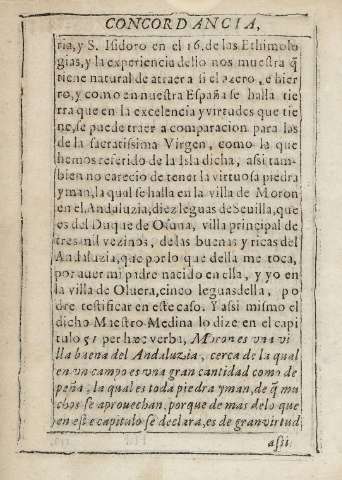 CONCORDANCIA,
ria, y S. Isidoro en el 16. de las Ethimolo
gias, y la experiencia dello nos muestra q̃
tiene natural de atraer a si el azero, e hier
ro, y como en nuestra España se halla tie
rra que en la excelencia y virtudes que tie
ne, se puede traer a comparacion para las
de la sacratissima Virgen, como la que
hemos referido de la Isla dicha, assi tam-
bien no carecio de tener la virtuosa piedra
yman, la qual se halla en la villa de Moron
en el Andaluzia, diez leguas de Seuilla, que
es del Duque de Osuna, villa principal de
tres mil vezinos, de las buenas y ricas del
Andaluzia, que por lo que della me toca,
por auer mi padre nacido en ella, y yo en
la villa de Oluera, cinco leguas della, po
dre testificar en este caso. Y assi mismo el
dicho Maestro Medina lo dize en el capi
tulo 51 per hæc verba, Moron es vna vi
lla buena del Andaluzia, cerca de la qual
en vn campo es vna gran cantidad como de
peña, la qual es toda piedra yman, de q̃ mu
chos se aprouechan, porque de mas de lo que
en este capitulo se declara, es de gran virtud
assi